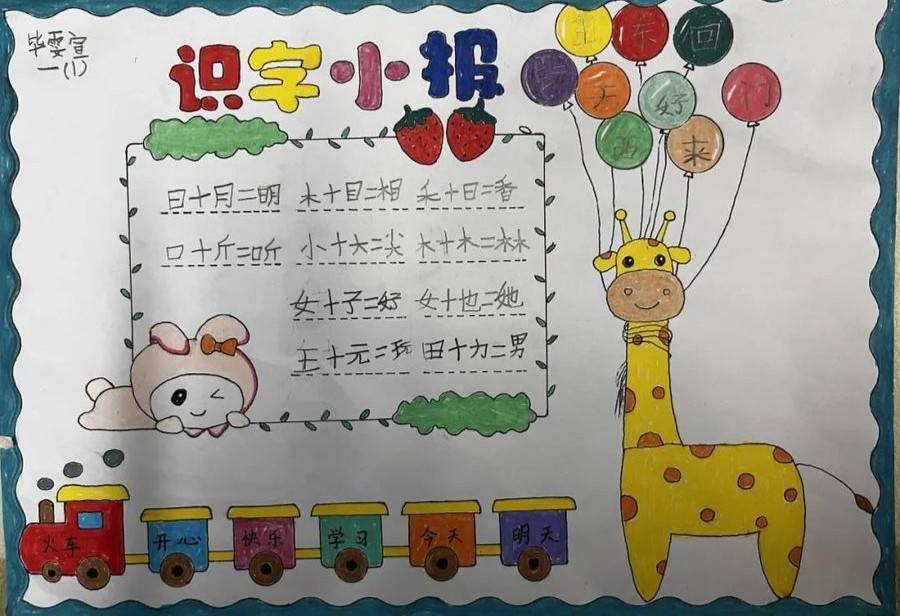 毕雯宣
一(1)
识字小报
王 东 回
天 好 门
西 来
日+月=明 木+目=相 禾+日=香
口+斤=听 小+大=尖 木+木=林
女+子=好 女+也=她
王+元=玩 田+力=男
火车 开心 快乐 学习 今天 明天